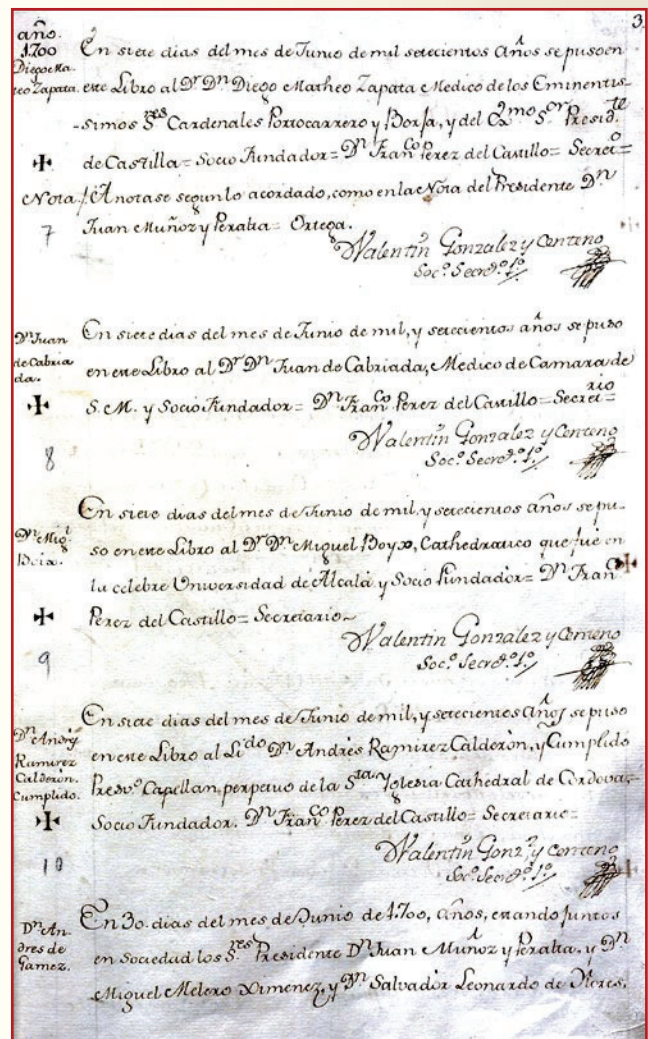 3.
año.
1700
Diego Ma-
teo Zapata.
En siete dias del mes de Junio de mil setecientos Años se puso en
este Libro al Dr Dn Diego Matheo Zapata Medico de los Eminentis-
-simos Sres Cardenales Portocarrero y Borja, y del Exmo Sor Presid.te
de Castilla= Socio Fundador= Dn Franco Perez del Castillo= Secret.o=
Nota / Anotase segun lo acordado, como en la Nota del Presidente Dn
Juan Muñoz y Peralta= Ortega.
7
Valentin Gonzalez y Centeno
Soc.o Secret.o 1.o
Dn Juan
de Cabria
da.
En siete dias del mes de Junio de mil, y setecientos años se puso
en este Libro al Dr Dn Juan de Cabriada, Medico de Camara de
S. M. y Socio Fundador= Dn Franco Perez del Castillo= Secret.rio=
8
Valentin Gonzalez y Centeno
Soc.o Secret.o 1.o
Dn Migl
Boix.
En siete dias del mes de Junio de mil, y setecientos años se pu-
so en este Libro al Dr Dn Miguel Boyx, Cathedratico que fue en
la celebre Universidad de Alcalà y Socio Fundador= Dn Fran
Perez del Castillo= Secretario~
9
Valentin Gonzalez y Centeno
Soc.o Secret.o 1.o
Dn Andrs
Ramirez
Calderòn.
Cumplido.
En siete dias del mes de Junio de mil, y setecientos Años se puso
en este Libro al Lido Dn Andrès Ramirez Calderòn, y Cumplido
Presv.o Capellan perpetuo de la Sta Yglesia Cathedral de Cordova,-
Socio Fundador. Dn Franco Perez del Castillo= Secretario=
10
Valentin Gonz.z y Centeno
Soc.o Secret.o 1.o
Dn An-
dres de
Gamez.
En 30. dias del mes de Junio de 1700, años, estando juntos
en Sociedad los Sres Presidente Dn Juan Muñoz y Peralta, y Dn
Miguel Melero Ximenez, y Dn Salvador Leonardo de Flores,